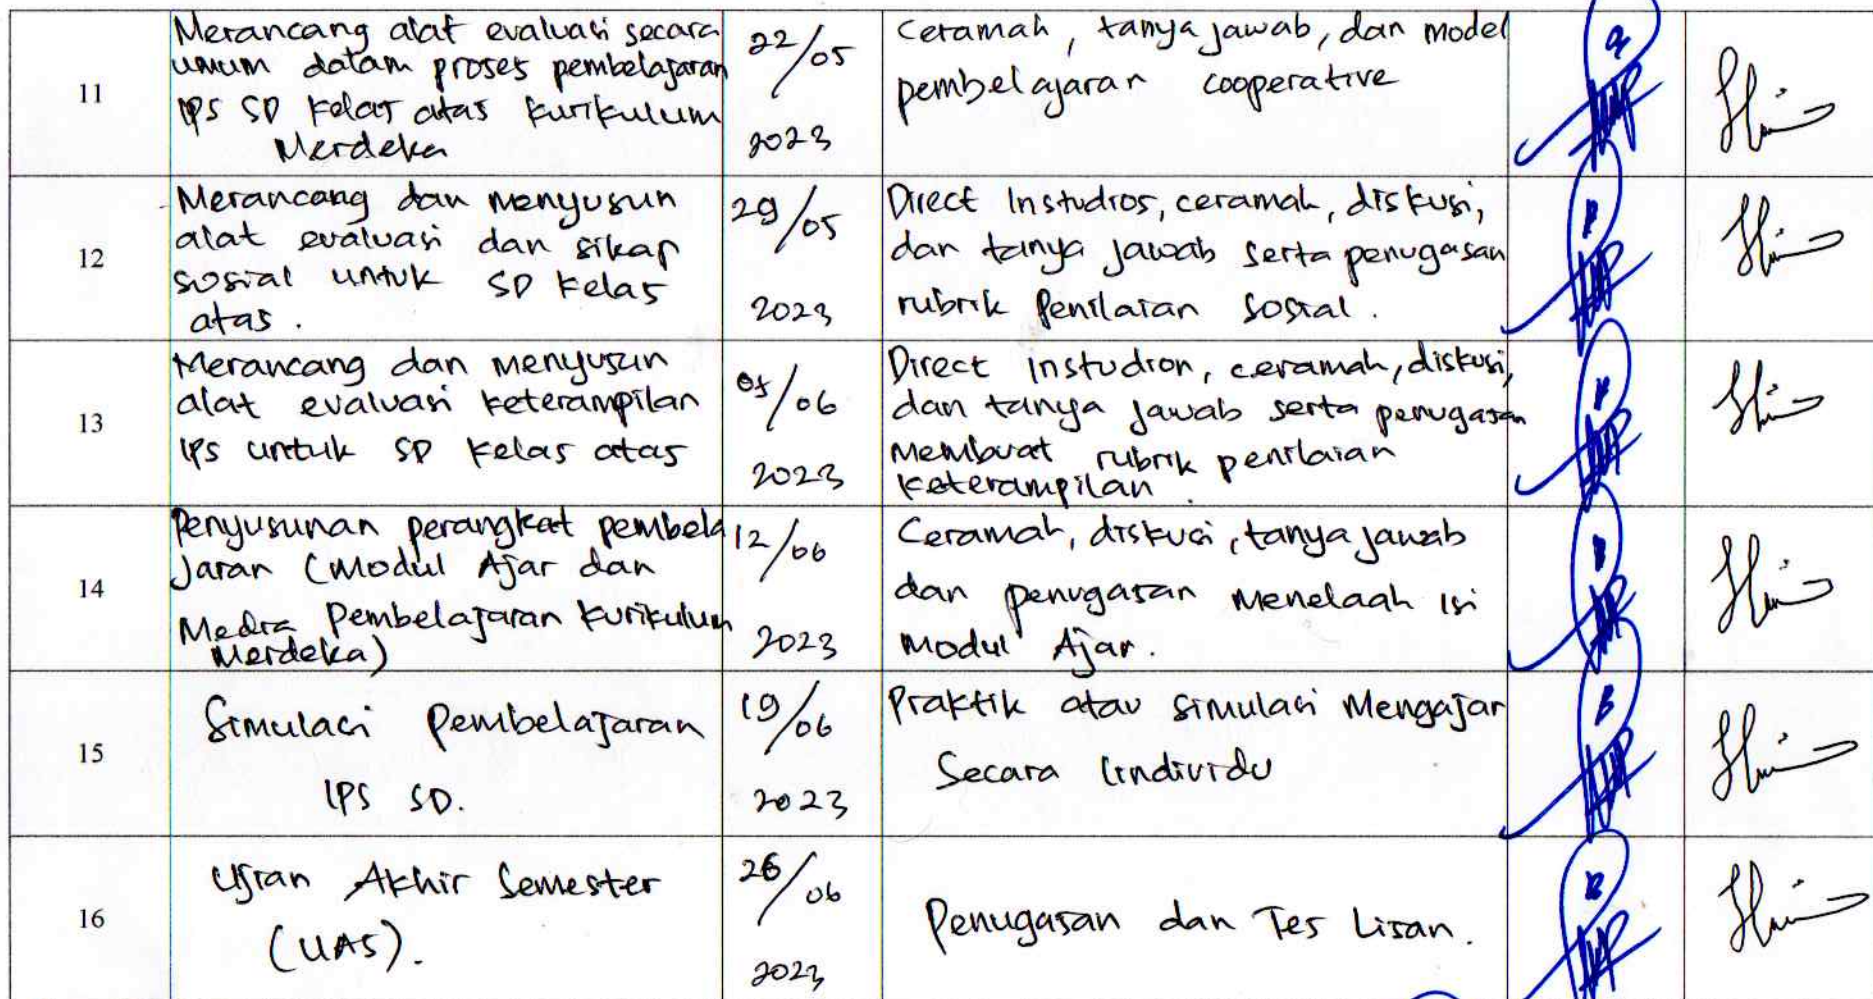 11
Merancang alat evaluasi secara
umum dalam proses pembelajaran
IPS SD Kelas atas Kurikulum
Merdeka
22/05
2023
Ceramah, tanya jawab, dan model
pembelajaran cooperative
12
Merancang dan menyusun
alat evaluasi dan sikap
sosial untuk SD Kelas
atas.
29/05
2023
Direct Instudros, ceramah, diskusi,
dan tanya jawab serta penugasan
rubrik Penilaian Sosial.
13
Merancang dan menyusun
alat evaluasi keterampilan
IPS untuk SD Kelas atas
05/06
2023
Direct Instudion, ceramah, diskusi,
dan tanya jawab serta penugasan
Membuat rubrik penilaian
keterampilan.
14
Penyusunan perangkat pembela
Jaran (Modul Ajar dan
Media Pembelajaran Kurikulum
Merdeka)
12/06
2023
Ceramah, diskusi, tanya jawab
dan penugasan Menelaah isi
Modul Ajar.
15
Simulasi Pembelajaran
IPS SD.
19/06
2023
Praktik atau simulasi Mengajar
Secara individu
16
Ujian Akhir Semester
(UAS).
26/06
2023
Penugasan dan Tes Lisan.